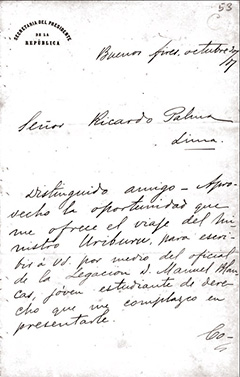 53
SECRETARIA DEL PRESIDENTE
DE LA
REPÚBLICA
Buenos Ayres, octubre 27
/7
Señor Ricardo Palma
Lima.
Distinguido amigo - Apro-
vecho la oportunidad que
me ofrece el viaje del Mi-
nistro Uriburu, para escri-
bir á Vd. por medio del oficial
de la Legacion D. Manuel Blan-
cas, jóven estudiante de dere-
cho que me complazco en
presentarle.
Co-